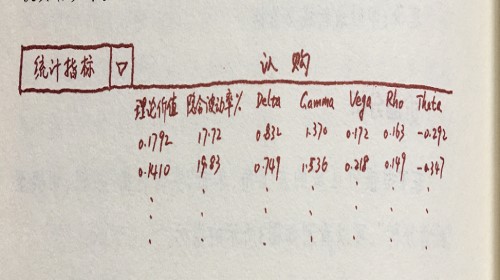 统计指标 ▽ 认购
理论价值 隐含波动率% Delta Gamma Vega Rho Theta
0.1792 17.72 0.832 1.370 0.172 0.163 -0.292
0.1410 19.83 0.749 1.536 0.218 0.149 -0.347